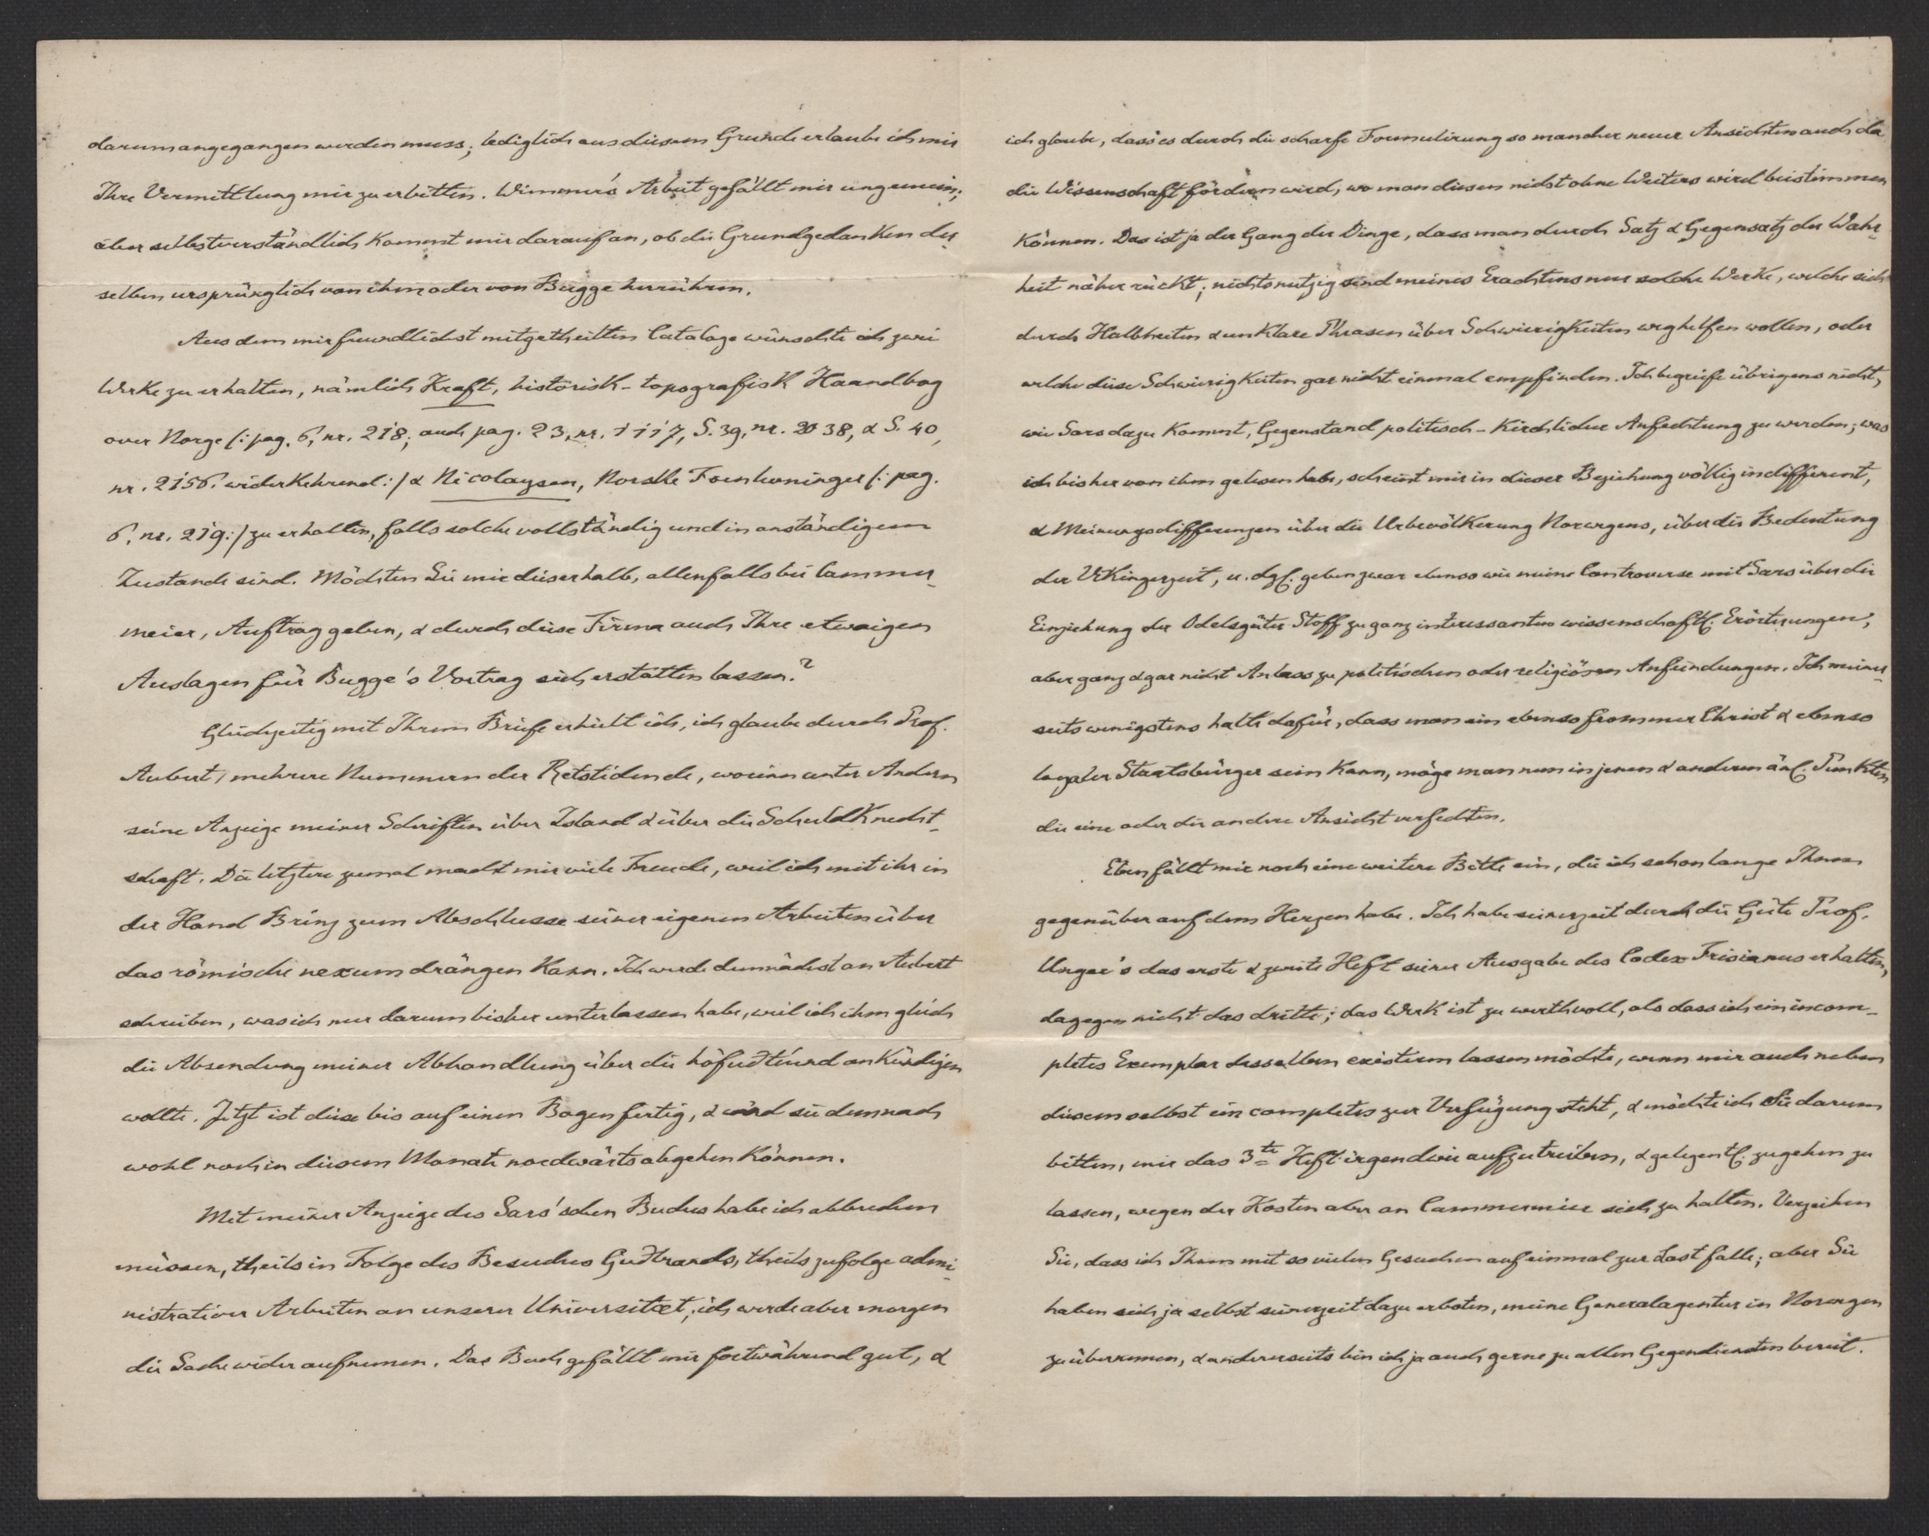 darum angegangen werden muss; lediglich aus diesem Grunde erlaube ich mir
Ihre Vermittlung mir zu erbitten. Wimmer's Arbeit gefällt mir ungemein;
aber selbstverständlich kommt mir darauf an, ob die Grundgedanken der
selben ursprünglich von ihm oder von Bugge herrühren.
Aus dem mir freundlichst mitgetheilten Cataloge wünschte ich zwei
Werke zu erhalten, nämlich Kraft, historisk-topografisk Haandbog
over Norge /: pag. 6, nr. 218; auch pag. 23, nr. 1117, S. 39, nr. 2038, & S. 40,
nr. 2156. widerkehrend :/ & Nicolaysen, Norske Fornlevninger /: pag.
6, nr. 219 :/ zu erhalten, falls solche vollständig und in anständigem
Zustande sind. Möchten Sie mir dieserhalb, allenfalls bei Cammer-
meier, Auftrag geben, & durch diese Firma auch Ihre etwaigen
Auslagen für Bugge's Vortrag sich erstatten lassen?
Gleichzeitig mit Ihrem Briefe erhielt ich, ich glaube durch Prof.
Aubert, mehrere Nummern der Retstidende, worinn unter Andern
seine Anzeige meiner Schriften über Island & über die Schuldknecht-
schaft. Die letztere zumal macht mir viele Freude, weil ich mit ihr in
der Hand Brinz zum Abschlusse seiner eigenen Arbeiten über
das römische nexum drängen kann. Ich werde demnächst an Aubert
schreiben, was ich nur darum bisher unterlassen habe, weil ich ihm gleich
die Absendung meiner Abhandlung über die höfuðtíund ankündigen
wollte. Jetzt ist diese bis auf einen Bogen fertig, & wird sie demnach
wohl noch in diesem Monate nordwärts abgehen können.
Mit meiner Anzeige des Sars'schen Buches habe ich abbrechen
müssen, theils in Folge des Besuches Guðbrands, theils zufolge admi-
nistrativer Arbeiten an unserer Universitæt; ich werde aber morgen
die Sache wider aufnemen. Das Buch gefällt mir fortwährend gut, &
ich glaube, dass es durch die scharfe Formulirung so mancher neuer Ansichten auch da
die Wissenschaft fördern wird, wo man diesen nicht ohne Weiters wird beistimmen
können. Das ist ja der Gang der Dinge, dass man durch Satz & Gegensatz der Wahr-
heit näher rückt; nichtsnutzig sind meines Erachtens nur solche Werke, welche sich
durch Halbheiten & unklare Phrasen über Schwierigkeiten weghelfen wollen, oder
welche diese Schwierigkeiten gar nicht einmal empfinden. Ich begreife übrigens nicht,
wie Sars dazu kommt, Gegenstand politisch-kirchlicher Anfechtung zu werden; was
ich bisher von ihm gelesen habe, scheint mir in dieser Beziehung völlig indifferent,
& Meinungsdifferenzen über die Urbevölkerung Norwegens, über die Bedeutung
der Vikingerzeit, u. dgl. geben zwar ebenso wie meine Controverse mit Sars über die
Einziehung der Odelsgüter Stoff zu ganz interessanten wissenschaftl. Erörterungen,
aber ganz & gar nicht Anlass zu politischen oder religiösen Anfeindungen. Ich meiner-
seits wenigstens halte dafür, dass man ein ebenso frommer Christ & ebenso
loyaler Staatsbürger sein kann, möge man nun in jenen & anderen änl. Punkten
die eine oder die andere Ansicht verfechten.
Eben fällt mir noch eine weitere Bitte ein, die ich schon lange Ihnen
gegenüber auf dem Herzen habe. Ich habe seinerzeit durch die Güte Prof.
Unger's das erste & zweite Heft seiner Ausgabe des Codex Frisianus erhalten,
dagegen nicht das dritte; das Werk ist zu werthvoll, als dass ich ein incom-
pletes Exemplar desselben existiren lassen möchte, wenn mir auch neben
diesem selbst ein completes zur Verfügung steht, & möchte ich Sie darum
bitten, mir das 3te Heft irgendwie aufzutreiben, & gelegentl. zugehen zu
lassen, wegen der Kosten aber an Cammermeier sich zu halten. Verzeihen
Sie, dass ich Ihnen mit so vielen Gesuchen auf einmal zur Last falle; aber Sie
haben sich ja selbst seinerzeit dazu erboten, meine Generalagentur in Norwegen
zu übernemen, & andererseits bin ich ja auch gerne zu allen Gegendiensten bereit.